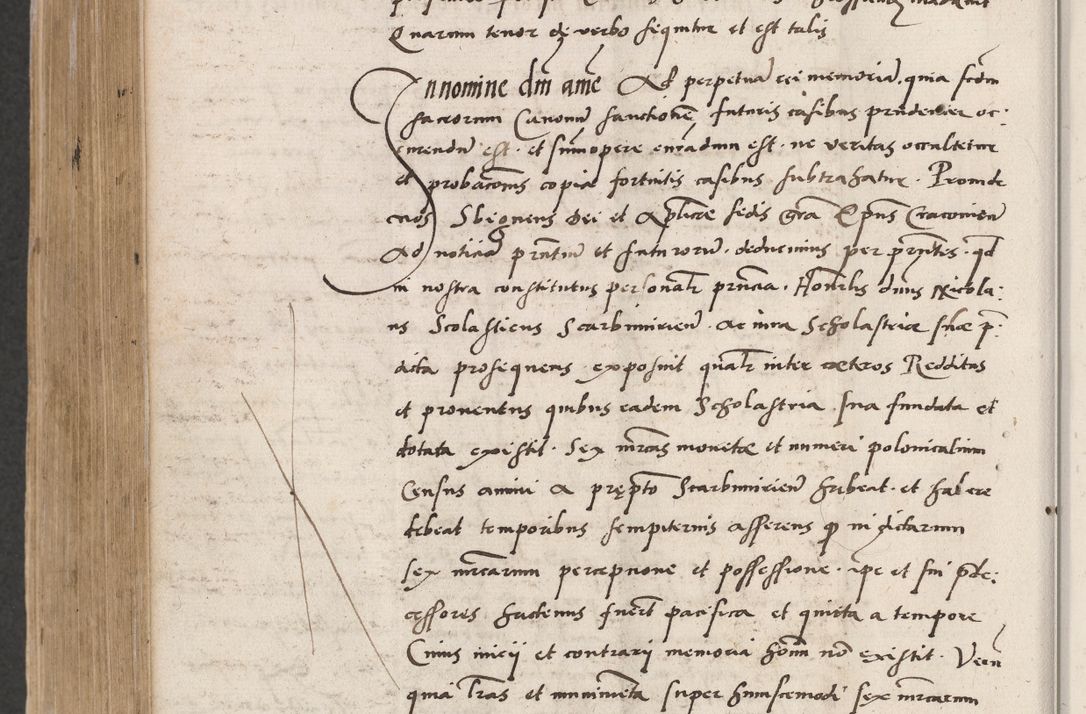 Quarum tenor de verbo sequitur et est talis
In nomine dm̄ amē Ad perpetuā rei memoriā, quia scdm̄
sacrorum Canonū sanctionē, futuris casibus prudenter oc-
currendū est · et sum̄opere curādum est · ne veritas occultetur
et probac̄onis copia fortuitis casibus subtrahatur · Proinde
nos Sbigneus dei et Apl̄icae sedis gr̄a Ep̄us Cracovien̄
Ad noticiā pn̄tiū et futurorū · deducimus per pn̄tes · qd̄
in nostra constitutus personalr̄ pn̄cia · Honorlis dn̄us Nicola:
us Scolasticus Scarbimirien̄ · ac iura Scholastriae suae p̄-
dicta prosequens · exposuit qualr̄ inter caeteros Redditus
et proventus quibus eadem Scholastria sua fundata et
dotata existit · Sex mr̄cas monetae et numeri polonicalium
Census annui a p̄ręp̄to Scarbimirien̄ habeat · et habere
debeat temporibus sempiternis asserens q̄ in dictarum
sex mr̄carum perceptione et possessione · ipe et sui p̄de:
cessores hactenus fuert̄ pacifica et quieta a tempore
Cuius inicii et contrarii memoria hoīm nō existit · Verū
quia lr̄as et munimēta super huiuscemodi sex mr̄carum